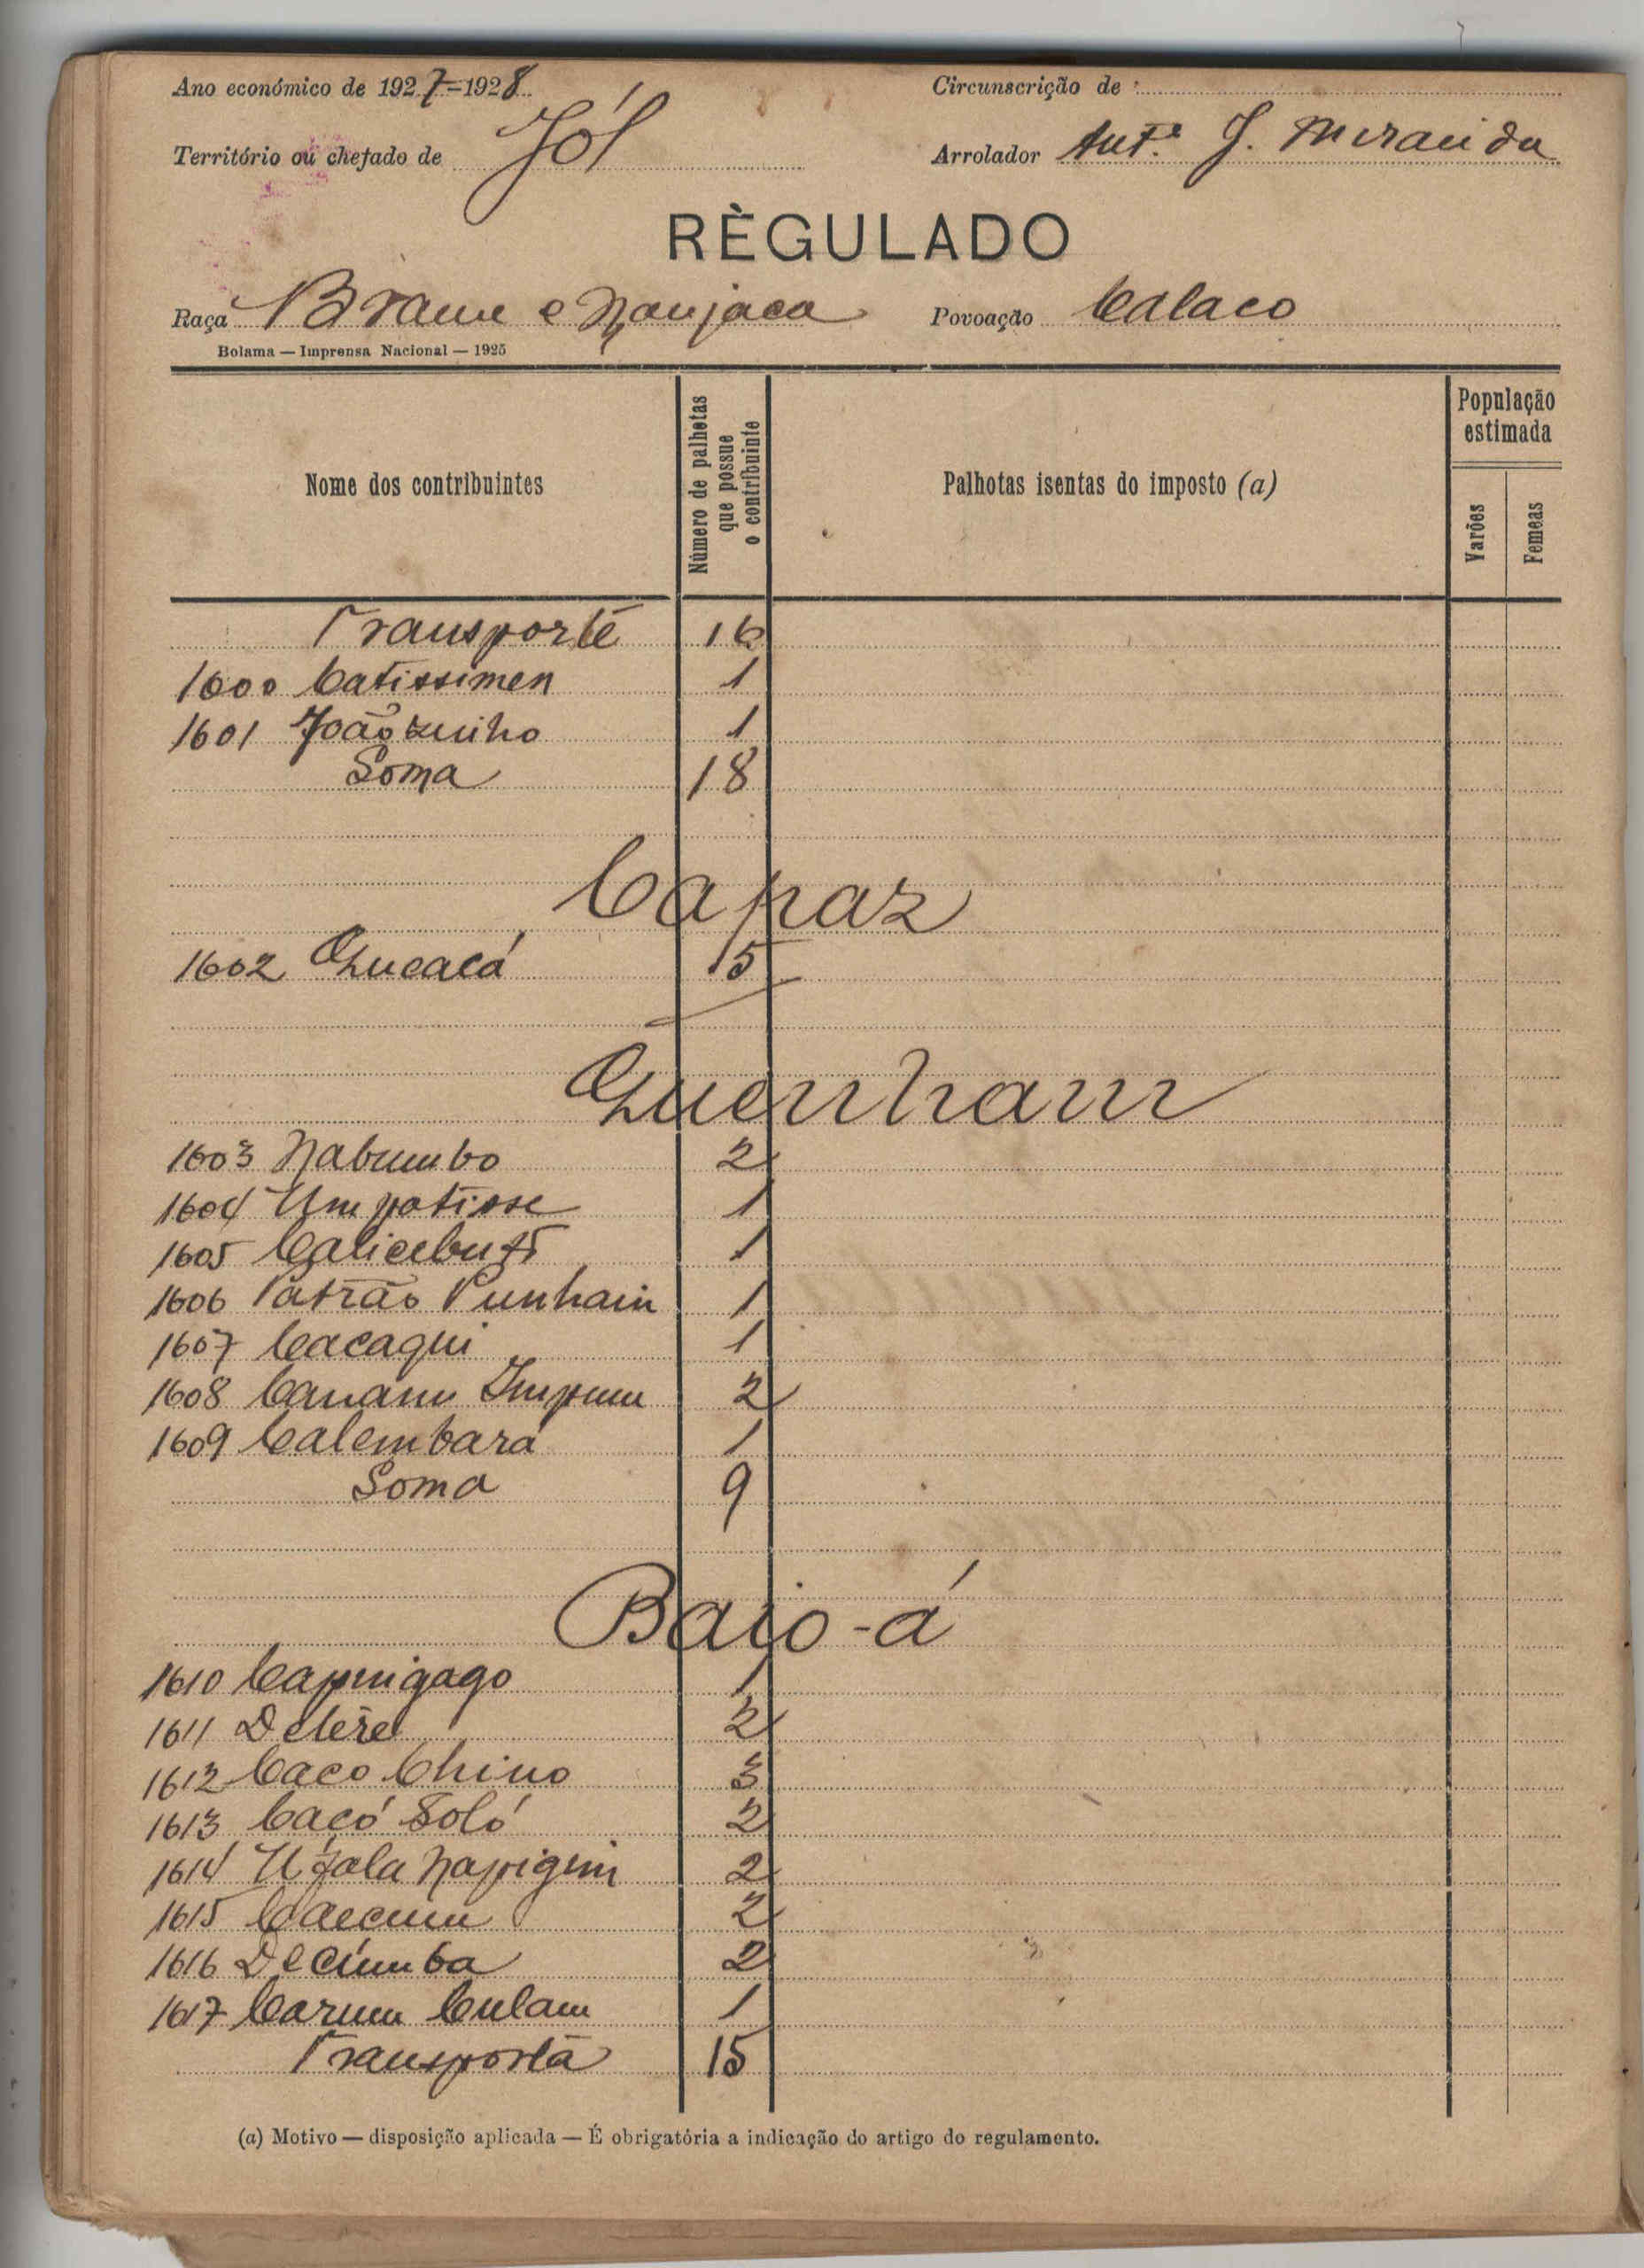 Ano económico de 1927-1928 Circunscrição de
Território ou chefado de Jól Arrolador Antº J. Miranda
RÈGULADO
Raça Brame e Manjaca Povoação Calaco
Bolama — Imprensa Nacional — 1925
Nome dos contribuintes
Número de palhetas que possue o contribuinte
Palhotas isentas do imposto (a)
População estimada
Varões
Femeas
Transporte 16
1600 Catissimen 1
1601 Joãozinho 1
Soma 18
Capaz
1602 Quecacá 15
Quenham
1603 Nabumbo 2
1604 Umpatisse 1
1605 1
1606 Patrão Punhain 1
1607 Cacaqui 1
1608 Cananu Impum 2
1609 Calembará 1
Soma 9
Baio-á
1610 Capuigago 1
1611 2
1612 Caco Chino 3
1613 Cacó Soló 2
1614 2
1615 2
1616 Decumba 2
1617 Carum Culam 1
Transporta 15
(a) Motivo — disposição aplicada — É obrigatória a indicação do artigo do regulamento.